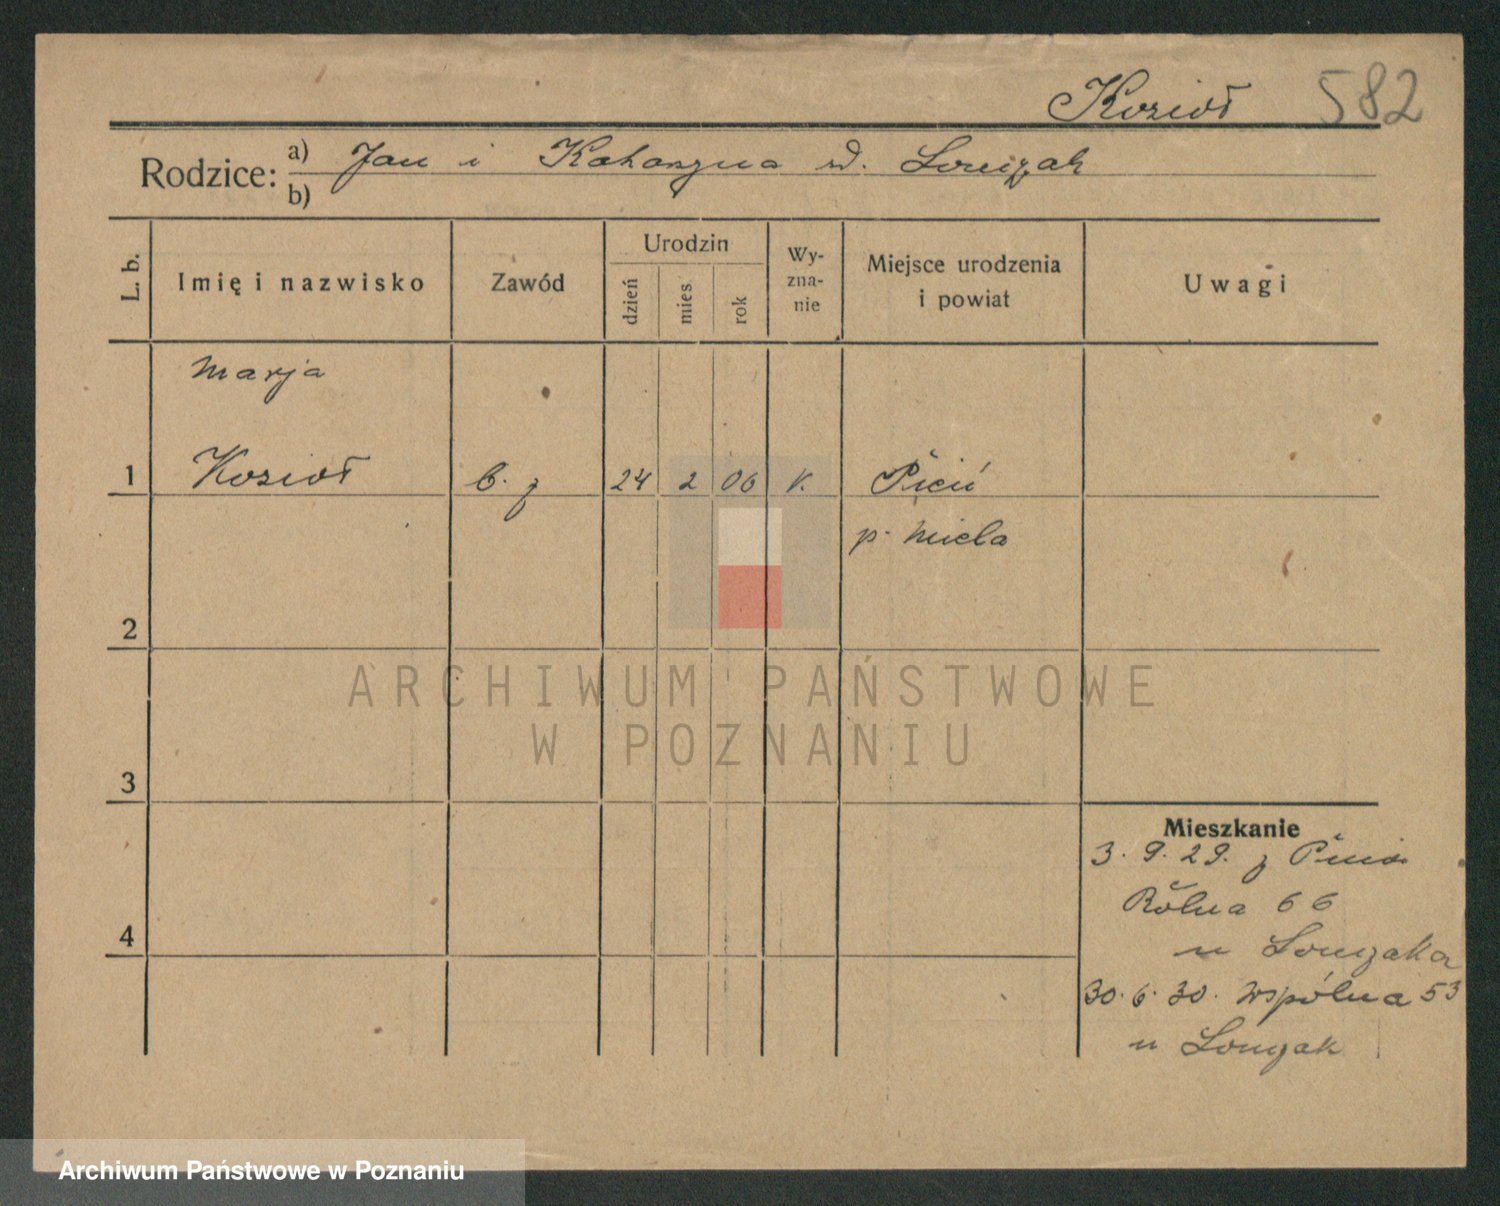 Kozioł 582
Rodzice: a) Jan i Katarzyna d. Lonczak
b)
L. b. Imię i nazwisko Zawód Urodzin dzień mies. rok Wy-zna-nie Miejsce urodzenia i powiat Uwagi
Marja
1 Kozioł b. z 24 2 06 k.
p.
2
ARCHIWUM PAŃSTWOWE
W POZNANIU
3
Mieszkanie
3. 9. 29. z
Rólna 66
4
u Lonczaka
30. 6. 30. Wspólna 53
u Lonczak
Archiwum Państwowe w Poznaniu